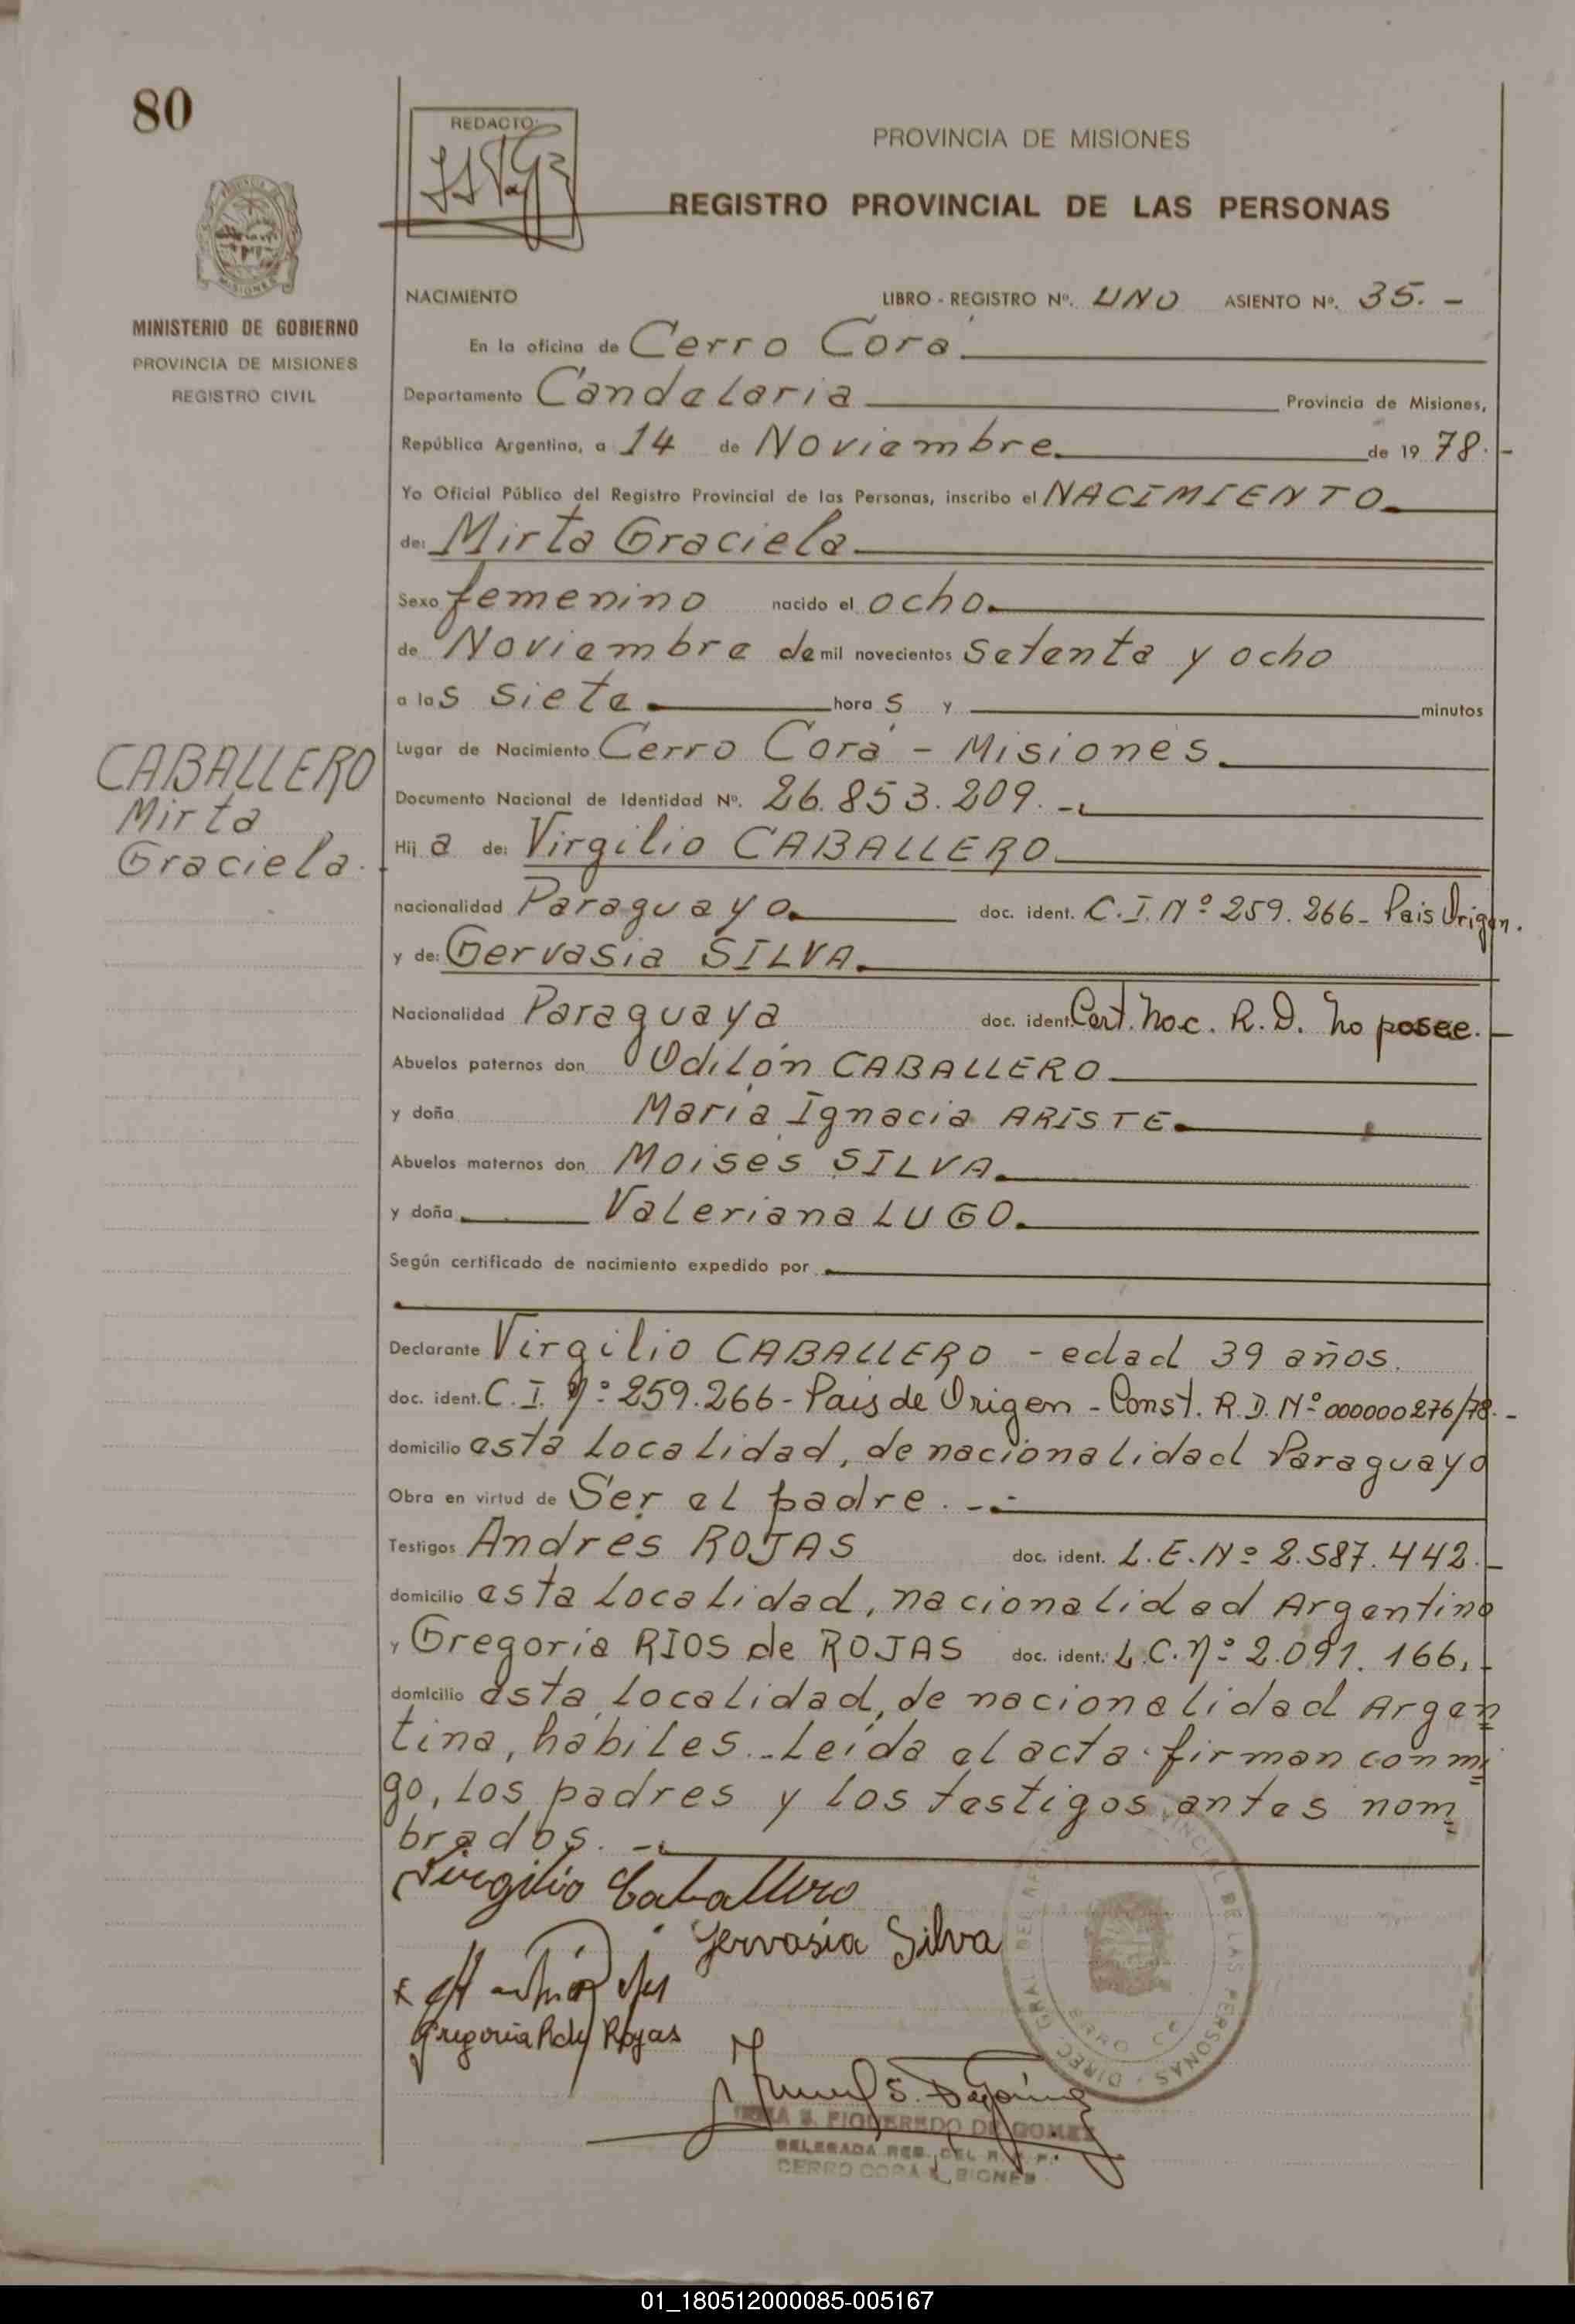 80
REDACTO:
PROVINCIA DE MISIONES
REGISTRO PROVINCIAL DE LAS PERSONAS
MISIONES
MINISTERIO DE GOBIERNO
PROVINCIA DE MISIONES
REGISTRO CIVIL
NACIMIENTO LIBRO - REGISTRO Nº. UNO ASIENTO Nº. 35. -
En la oficina de Cerro Corá
Departamento Candelaria Provincia de Misiones,
República Argentina, a 14 de Noviembre de 19 78.-
Yo Oficial Público del Registro Provincial de las Personas, inscribo el NACIMIENTO
de: Mirta Graciela
Sexo femenino nacido el ocho
de Noviembre de mil novecientos setenta y ocho
a las siete horas y minutos
Lugar de Nacimiento Cerro Corá - Misiones
CABALLERO
Mirta
Graciela.
Documento Nacional de Identidad Nº. 26.853.209.-
Hija de: Virgilio CABALLERO
nacionalidad Paraguayo doc. ident. C.I.Nº 259.266- Pais Origen.
y de: Gervasia SILVA
Nacionalidad Paraguaya doc. ident. Cert. Nac. R.D. No posee.-
Abuelos paternos don Odilón CABALLERO
y doña María Ignacia ARISTE
Abuelos maternos don Moisés SILVA
y doña Valeriana LUGO
Según certificado de nacimiento expedido por
Declarante Virgilio CABALLERO - edad 39 años.
doc. ident. C.I. Nº 259.266- Pais de Origen - Const. R.D. Nº 000000276/78.-
domicilio esta localidad, de nacionalidad Paraguayo
Obra en virtud de Ser el padre. -.-
Testigos Andrés ROJAS doc. ident. L.E.Nº 2.587.442.-
domicilio esta localidad, nacionalidad Argentino
y Gregoria RIOS de ROJAS doc. ident. L.C. Nº 2.091.166.-
domicilio esta localidad, de nacionalidad Argen
tina, hábiles.- Leída el acta firman conmi
go, los padres y los testigos antes nom
brados. -.
Virgilio Caballero
Gervasia Silva
Gregoria R de Rojas
DIREC. GRAL. DEL REG. PROVINCIAL DE LAS PERSONAS
S. FIGUEREDO DE GOMEZ
DELEGADA REG. DEL R. P. P.
CERRO CORÁ MISIONES
01_180512000085-005167